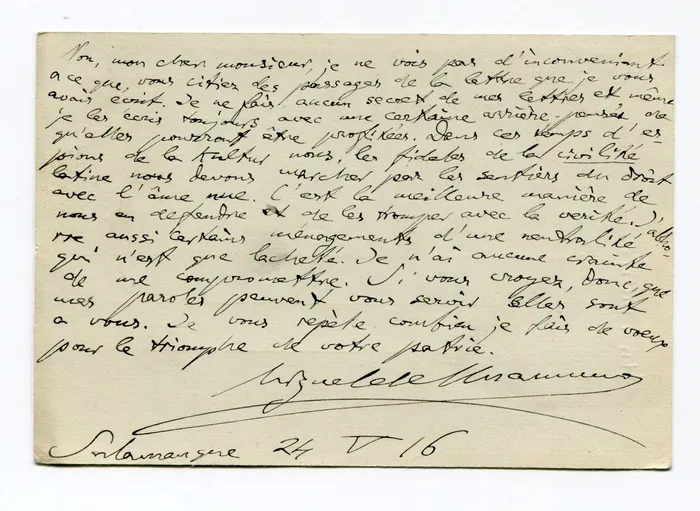 Non, mon cher monsieur, je ne vois pas d'inconvenient
a ce que vous citiez des passages de la lettre que je vous
avais ecrit. Je ne fais aucun secret de mes lettres et même
je les ecris toujours avec une certaine arrière-pensée
qu'elles pourront être profitées. Dans ces temps d'es-
pions de la Kultur nous, les fideles de la civilité
latine nous devons marcher par les sentiers du droit
avec l'âme nue. C'est la meilleure manière de
nous en defendre et de les tromper avec la verité. J'abho-
rre aussi certains ménagements d'une neutralité
qui n'est que lacheté. Je n'ai aucune crainte
de me compromettre. Si vous croyez, donc, que
mes paroles peuvent vous servir elles sont
a vous. Je vous repète combien je fais de voeux
pour le triomphe de votre patrie.
Miguel de Unamuno
Salamanque 24 V 16